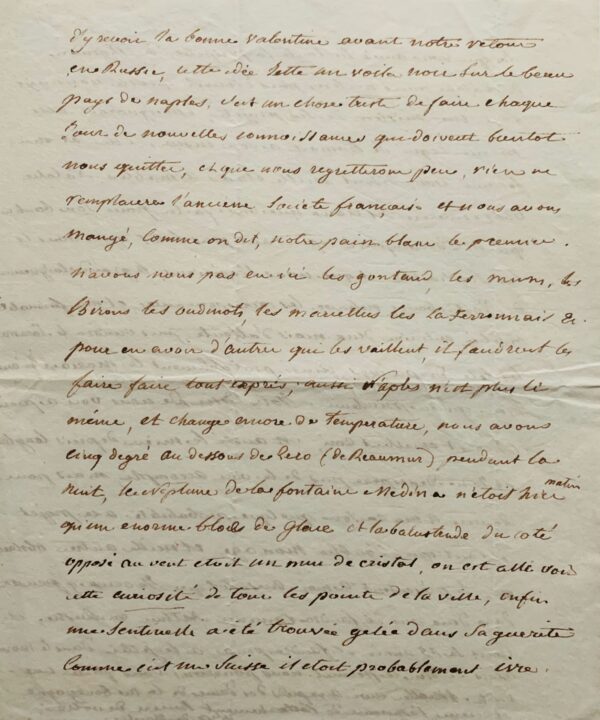 d'y revoir la bonne Valentine avant notre retour
en Russie, cette idée jette un voile noir sur le beau
pays de naples, c'est un chose triste de faire chaque
jour de nouvelles connaissances qui doivent bientot
nous quitter, et que nous regretterons peu, rien ne
remplacera l'anciene societé française et nous avons
mangé, comme on dit, notre pain blanc le premier.
n'avons nous pas eu ici les gontaud, les mun, les
Birons les oudinots, les marcellus les la ferronnais &.
pour en avoir d'autres qui les vaillent, il faudroit les
faire faire tout exprés; aussi Naples n'est plus le
même, et change encore de temperature, nous avons
cinq degré au dessous de Zero (de Reaumur) pendant la
nuit, le neptune de la fontaine Medina n'etoit hier matin
qu'un enorme blocs de glace et la balustrade du coté
opposé au vent etoit un mur de cristal, on est allé voir
cette curiosité de tous les points de la ville, enfin
une sentinelle a été trouvée gelée dans sa guerite
comme c'est un suisse il etoit probablement ivre.